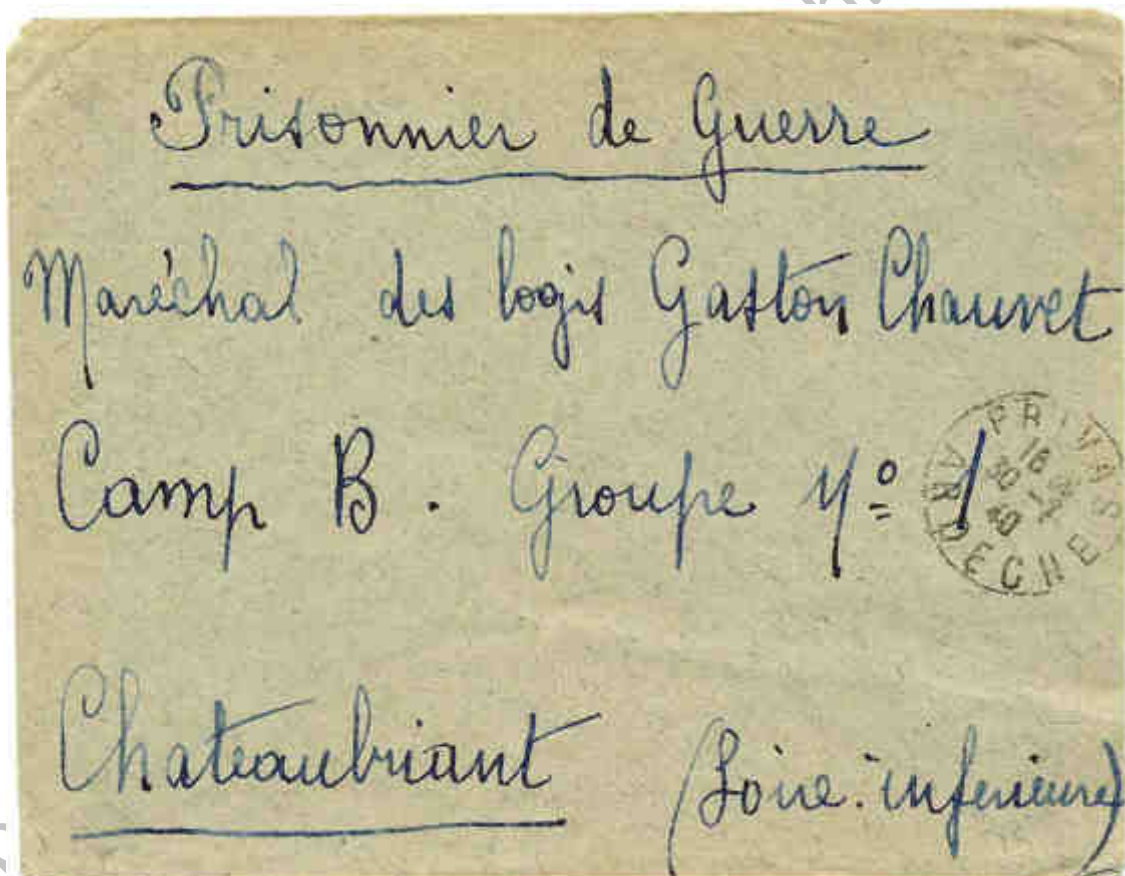 Prisonnier de Guerre
Maréchal des logis Gaston Chauvet
Camp B. Groupe No 1
PRIVAS
16
30
40
ARDECHE
Chateaubriant (Loire-inferieure)